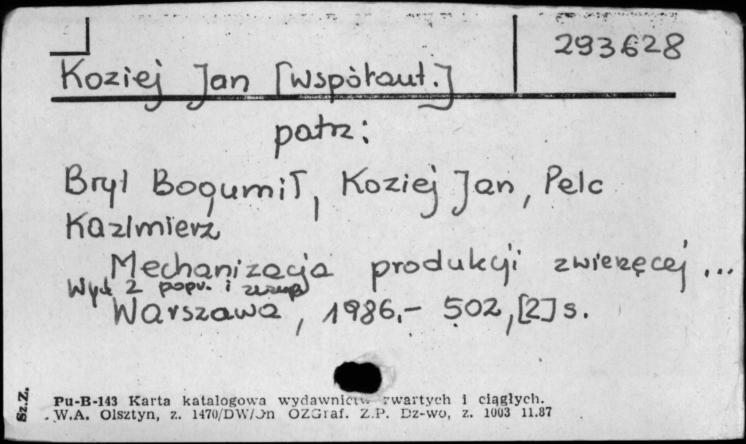 293628
Koziej Jan [współaut.]
patrz:
Brył Bogumił, Koziej Jan, Pelc
Kazimierz
Mechanizacja produkcji zwierzęcej ...
Wyd 2 popr. i
Warszawa, 1986.- 502,[2]s.
Sz.Z.
Pu-B-143 Karta katalogowa wydawnictw zwartych i ciągłych.
W.A. Olsztyn, z. 1470/DW/Jn OZGraf. Z.P. Dz-wo, z. 1003 11.87